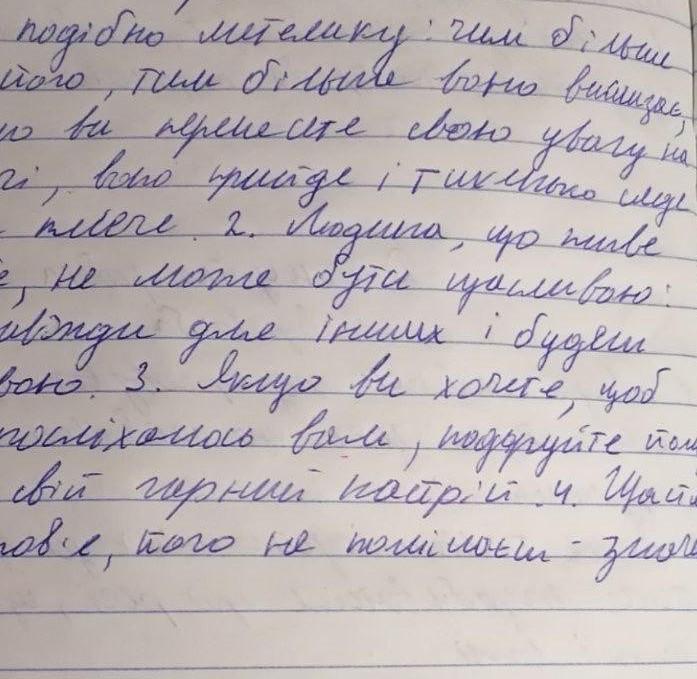 подібно метелику: чим більше
його, тим більше воно вислизає,
що ви перенесете свою увагу на
чі, воно прийде і тихенько сяде
плече. 2. Людина, що живе
е, не може бути щасливою:
авжди для інших і будеш
вою. 3. Якщо ви хочете, щоб
посміхалось вам, подаруйте йом
свій гарний настрій. 4. Щаст
ров'я, його не помічаєш - знач